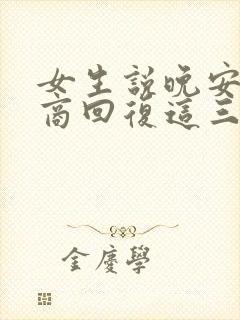 女生說晚安
商回復這三
金慶學